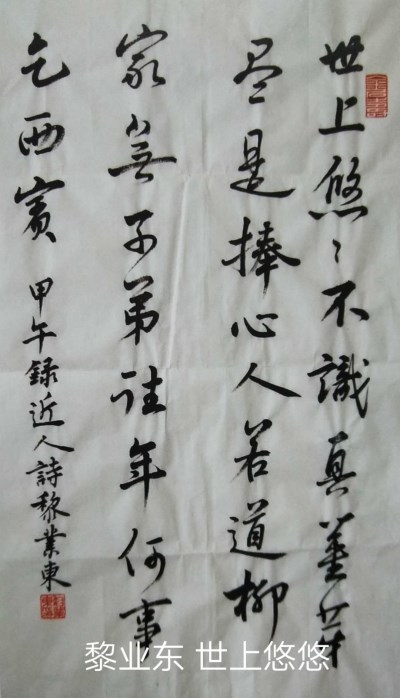 世上悠〻不識真薑芽
尽是捧心人若道柳
家無子弟往年何事
乞西賓 甲午録近人詩黎業東
黎业东 世上悠悠